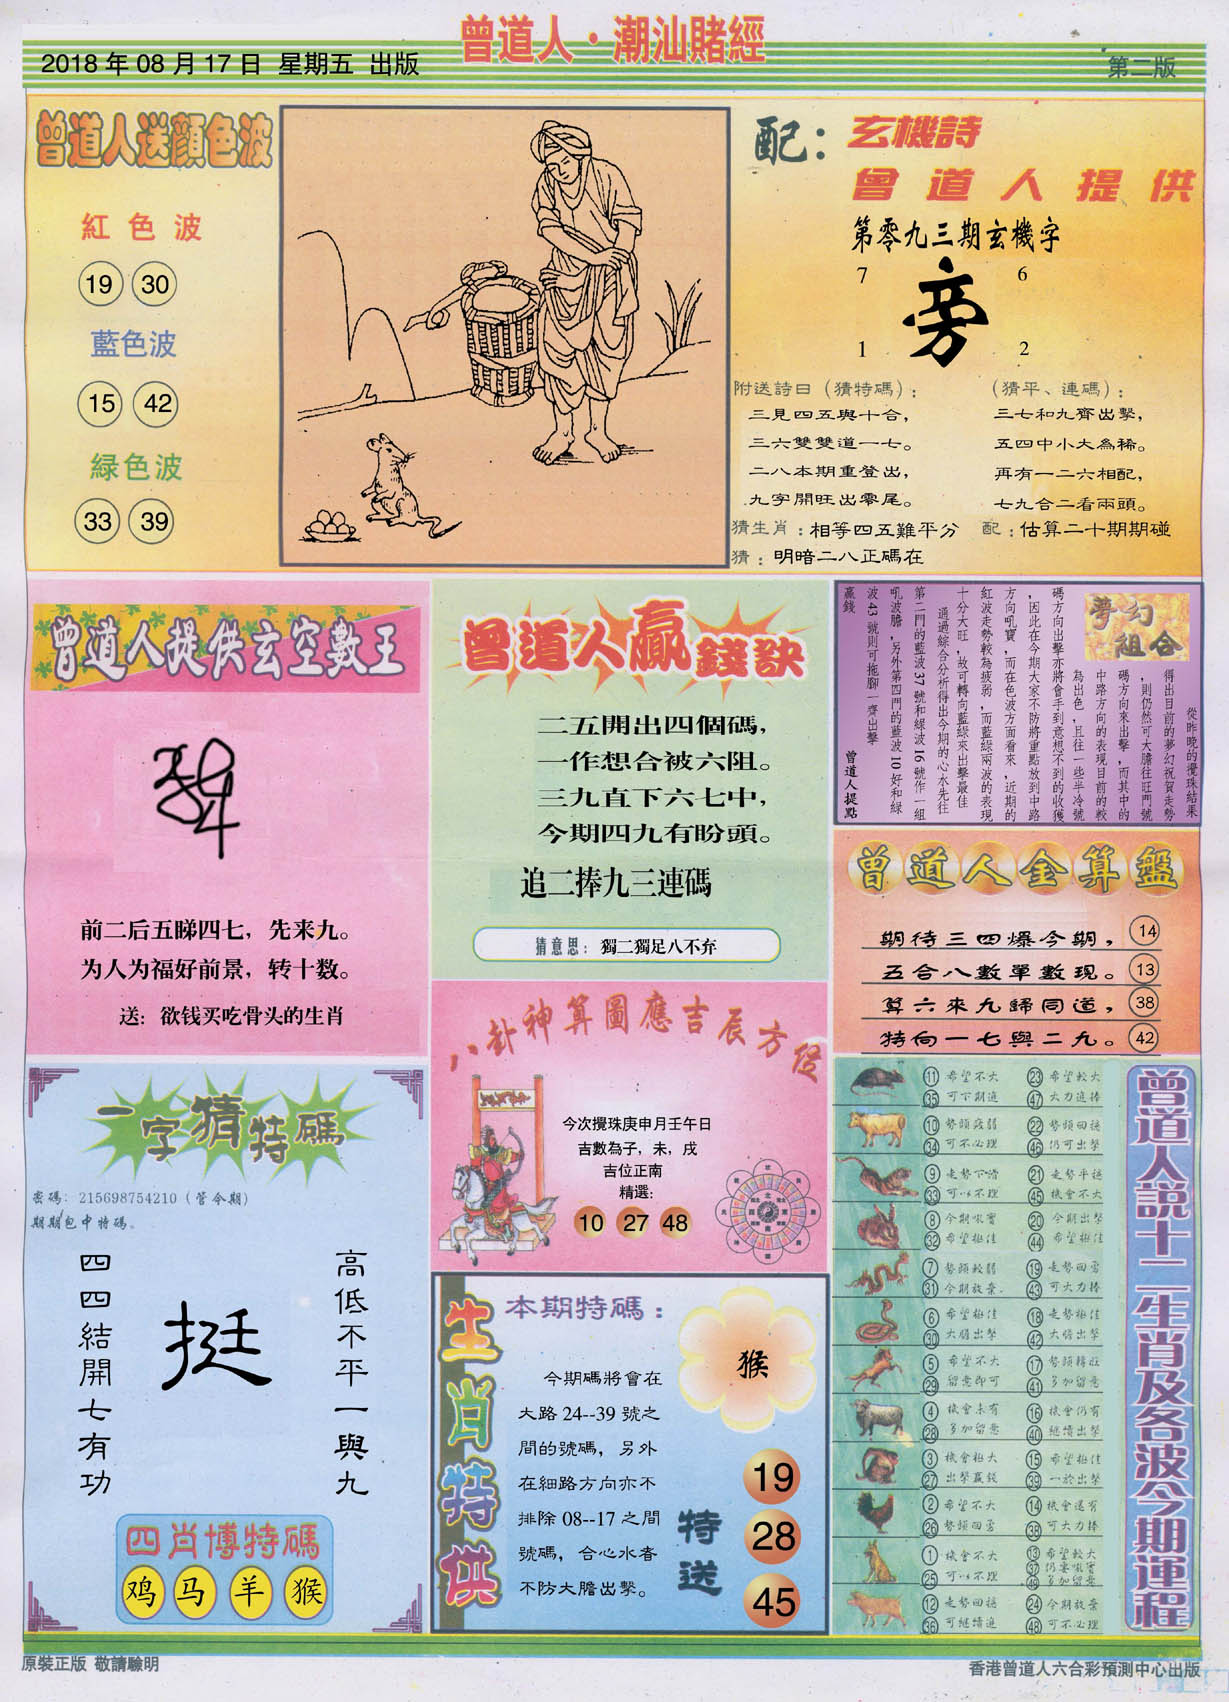 曾道人·潮汕賭經
2018年08月17日 星期五 出版
第二版
曾道人送顏色波
紅色波
19 30
藍色波
15 42
緑色波
33 39
配：玄機詩
曾道人提供
第零九三期玄機字
7 6
旁
1 2
附送詩曰（猜特碼）：
三見四五與十合，
三六雙雙道一七。
二八本期重登出，
九字開旺出零尾。
（猜平、連碼）：
三七和九齊出擊，
五四中小大為稀。
再有一二六相配，
七九合二看兩頭。
猜生肖：相等四五難平分
配：估算二十期期碰
猜：明暗二八正碼在
曾道人提供玄空數王
前二后五睇四七，先来九。
为人为福好前景，转十数。
送：欲钱买吃骨头的生肖
曾道人贏錢訣
二五開出四個碼，
一作想合被六阻。
三九直下六七中，
今期四九有盼頭。
追二捧九三連碼
猜意思：獨二獨足八不弃
夢幻
組合
從昨晚的攪珠結果
得出目前的夢幻祝賀走勢
，則仍然可大膽往旺門號
碼方向來出擊，而其中的
中路方向的表現目前的較
為出色，且往一些半冷號
碼方向出擊亦將會手到意想不到的收獲
，因此在今期大家不防將重點放到中路
方向吼寶，而在色波方面看來，近期的
紅波走勢較為疲弱，而藍綠兩波的表現
十分大旺，故可轉向藍綠來出擊最佳
通過綜合分析得出今期的心水先往
第二門的藍波37號和綠波16號作一組
吼波膽，另外第四門的藍波10好和綠
波43號則可拖腳一齊出擊
贏錢
曾道人提點
曾道人金算盤
期待三四爆今期， 14
五合八數單數現。 13
算六來九歸同道， 38
特向一七與二九。 42
一字猜特碼
密碼：215698754210（管今期）
期期包中特碼。
高低不平一與九
挺
四四結開七有功
四肖博特碼
鸡 马 羊 猴
八卦神算圖應吉辰方位
今次攪珠庚申月壬午日
吉數為子，未，戌
吉位正南
精選：
10 27 48
生肖特供
本期特碼：
猴
今期碼將會在
大路24--39號之
間的號碼，另外
在細路方向亦不
排除08--17之間
號碼，合心水者
不防大膽出擊。
特送
19
28
45
曾道人説十二生肖及各波今期運程
11 希望不大 23 希望較大
35 可下期追 47 大力追捧
10 勢頭疲弱 22 勢頭回穩
34 可不必理 46 仍可出擊
9 走勢下滑 21 走勢平穩
33 可以不理 45 機會不大
8 今期吼寶 20 今期出擊
32 希望極佳 44 希望極佳
7 勢頭較弱 19 走勢回勇
31 今期放棄 43 可大力捧
6 希望極佳 18 走勢極佳
30 大膽出擊 42 大膽出擊
5 希望不大 17 勢頭轉旺
29 留意即可 41 多加留意
4 機會未有 16 機會仍有
28 多加留意 40 繼續出擊
3 機會極大 15 希望極佳
27 出擊贏錢 39 一於出擊
2 希望不大 14 機會還有
26 勢頭回勇 38 可大力捧
1 機會不大 13 希望較大
37 仍要吼實
25 可以不理 49 多加留意
12 走勢回穩 24 今期放棄
36 可繼續追 48 可不必理
原裝正版 敬請驗明
香港曾道人六合彩預測中心出版